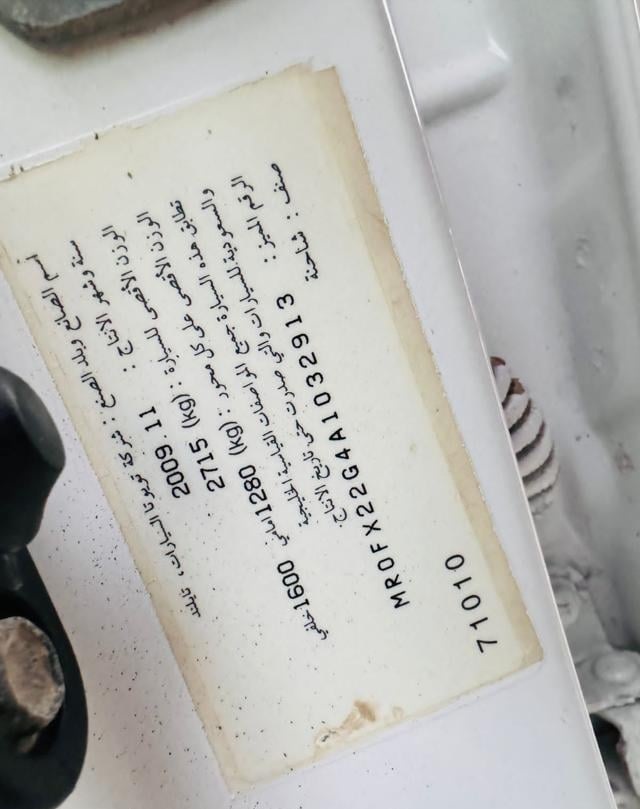 اسم الصانع وبلد الصنع : شركة تويوتا للسيارات ، تايلند
سنة وشهر الانتاج : 2009 11
الوزن الأقصى للسيارة (kg) : 2715
الوزن الأقصى على كل محور (kg) : 1280 أمامي 1600 خلفي
تطابق هذه السيارة جميع المواصفات القياسية الخليجية
والسعودية للسيارات والتي صدرت حتى تاريخ الانتاج
الرقم المميز : MR0FX22G4A1032913
صنف : شاحنة
71010